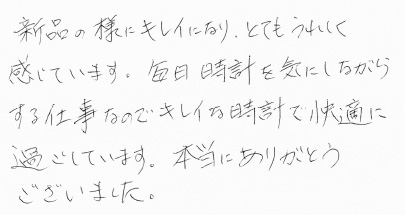 新品の様にキレイになり、とてもうれしく
感じています。毎日時計を気にしながら
する仕事なのでキレイな時計で快適に
過ごしています。本当にありがとう
ございました。